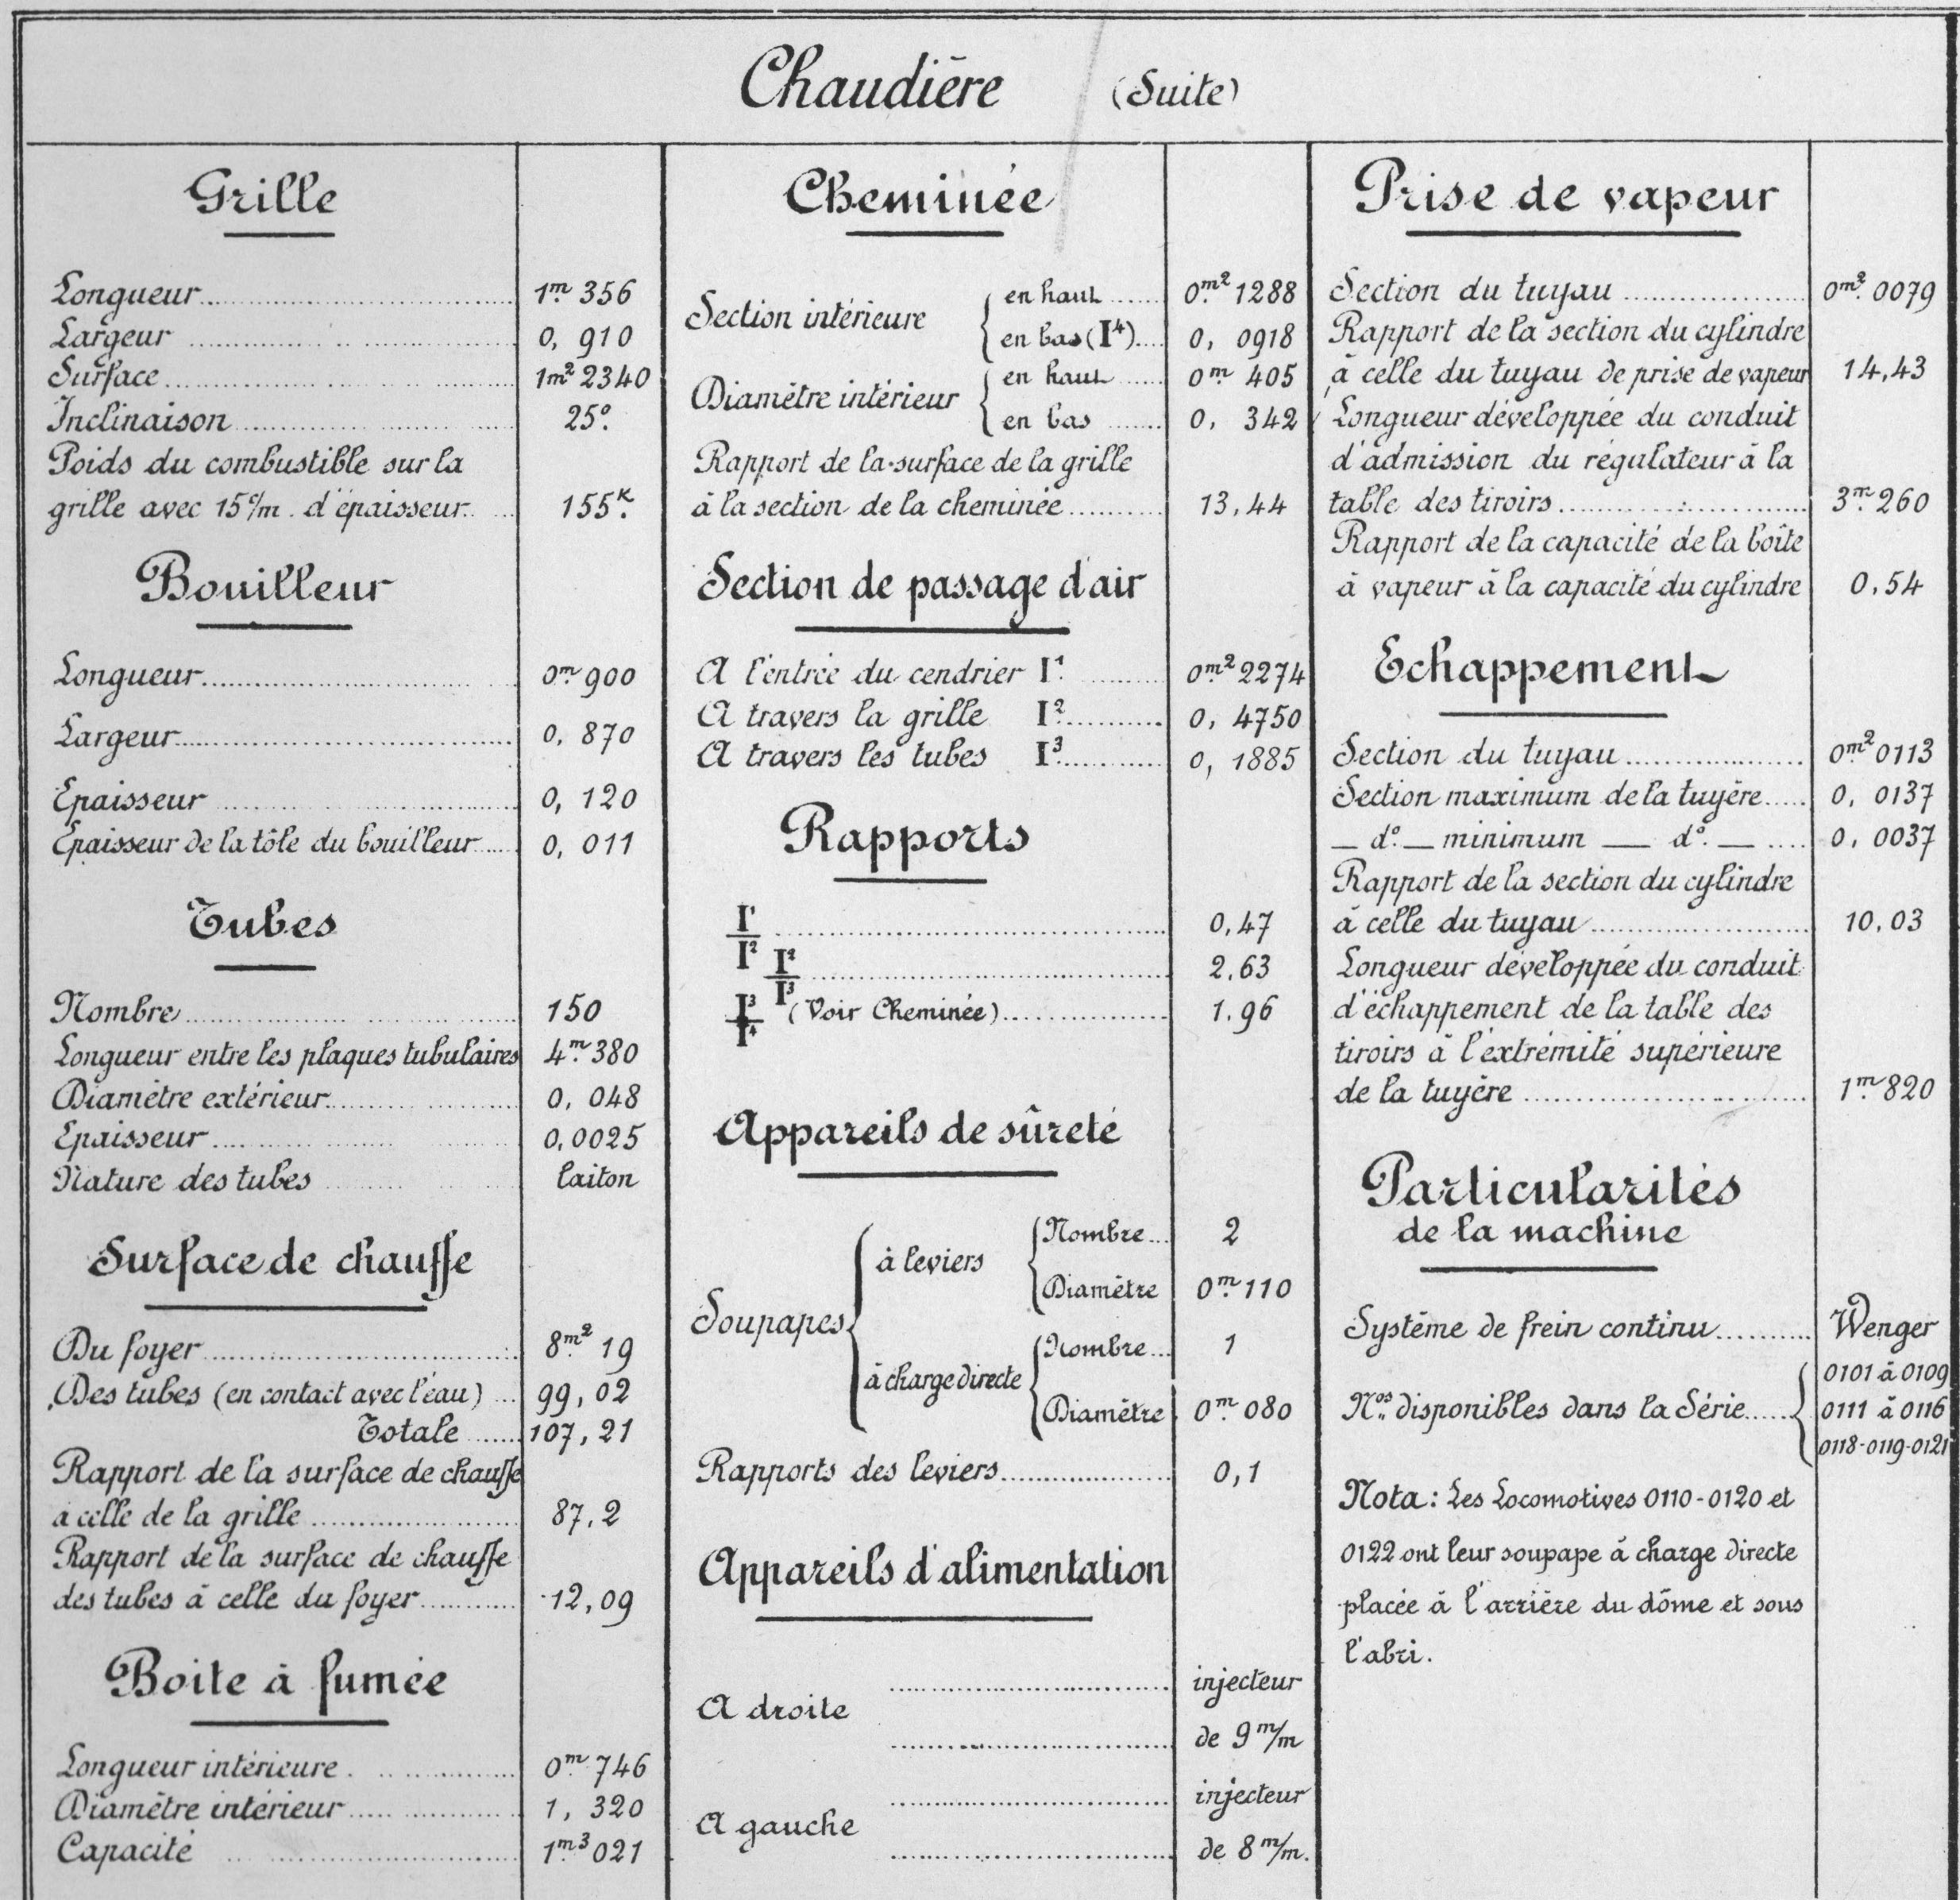 Chaudière (Suite)
Grille
Longueur 1m. 356
Largeur 0, 910
Surface 1m² 2340
Inclinaison 25°.
Poids du combustible sur la
grille avec 15 c/m. d'épaisseur 155K.
Bouilleur
Longueur 0m. 900
Largeur 0. 870
Epaisseur 0, 120
Epaisseur de la tôle du bouilleur 0, 011
Tubes
Nombre 150
Longueur entre les plaques tubulaires 4m. 380
Diamètre extérieur 0, 048
Epaisseur 0,0025
Nature des tubes laiton
Surface de chauffe
Du foyer 8m² 19
Des tubes (en contact avec l'eau) 99, 02
Totale 107, 21
Rapport de la surface de chauffe
à celle de la grille 87.2
Rapport de la surface de chauffe
des tubes à celle du foyer 12,09
Boite à fumée
Longueur intérieure 0m. 746
Diamètre intérieur 1, 320
Capacité 1m³ 021
Cheminée
Section intérieure
en haut 0m² 1288
en bas (I⁴) 0, 0918
Diamètre intérieur
en haut 0m. 405
en bas 0, 342
Rapport de la surface de la grille
à la section de la cheminée 13,44
Section de passage d'air
A l'entrée du cendrier I¹. 0m² 2274
A travers la grille I². 0, 4750
A travers les tubes I³. 0, 1885
Rapports
I¹/I² 0,47
I²/I³ 2,63
I³/I⁴ (Voir Cheminée) 1.96
Appareils de sûreté
Soupapes
à leviers
Nombre 2
Diamètre 0m. 110
à charge directe
Nombre 1
Diamètre 0m. 080
Rapports des leviers 0,1
Appareils d'alimentation
A droite
injecteur
de 9 m/m
A gauche
injecteur
de 8 m/m.
Prise de vapeur
Section du tuyau 0m². 0079
Rapport de la section du cylindre
à celle du tuyau de prise de vapeur 14,43
Longueur développée du conduit
d'admission du régulateur à la
table des tiroirs 3m. 260
Rapport de la capacité de la boîte
à vapeur à la capacité du cylindre 0.54
Echappement
Section du tuyau 0m² 0113
Section maximum de la tuyère 0, 0137
— d°. — minimum — d°. — 0, 0037
Rapport de la section du cylindre
à celle du tuyau 10.03
Longueur développée du conduit
d'échappement de la table des
tiroirs à l'extrémité supérieure
de la tuyère 1m. 820
Particularités
de la machine
Système de frein continu Wenger
Nos. disponibles dans la Série
0101 à 0109
0111 à 0116
0118-0119-0121
Nota: Les Locomotives 0110-0120 et
0122 ont leur soupape à charge directe
placée à l'arrière du dôme et sous
l'abri.